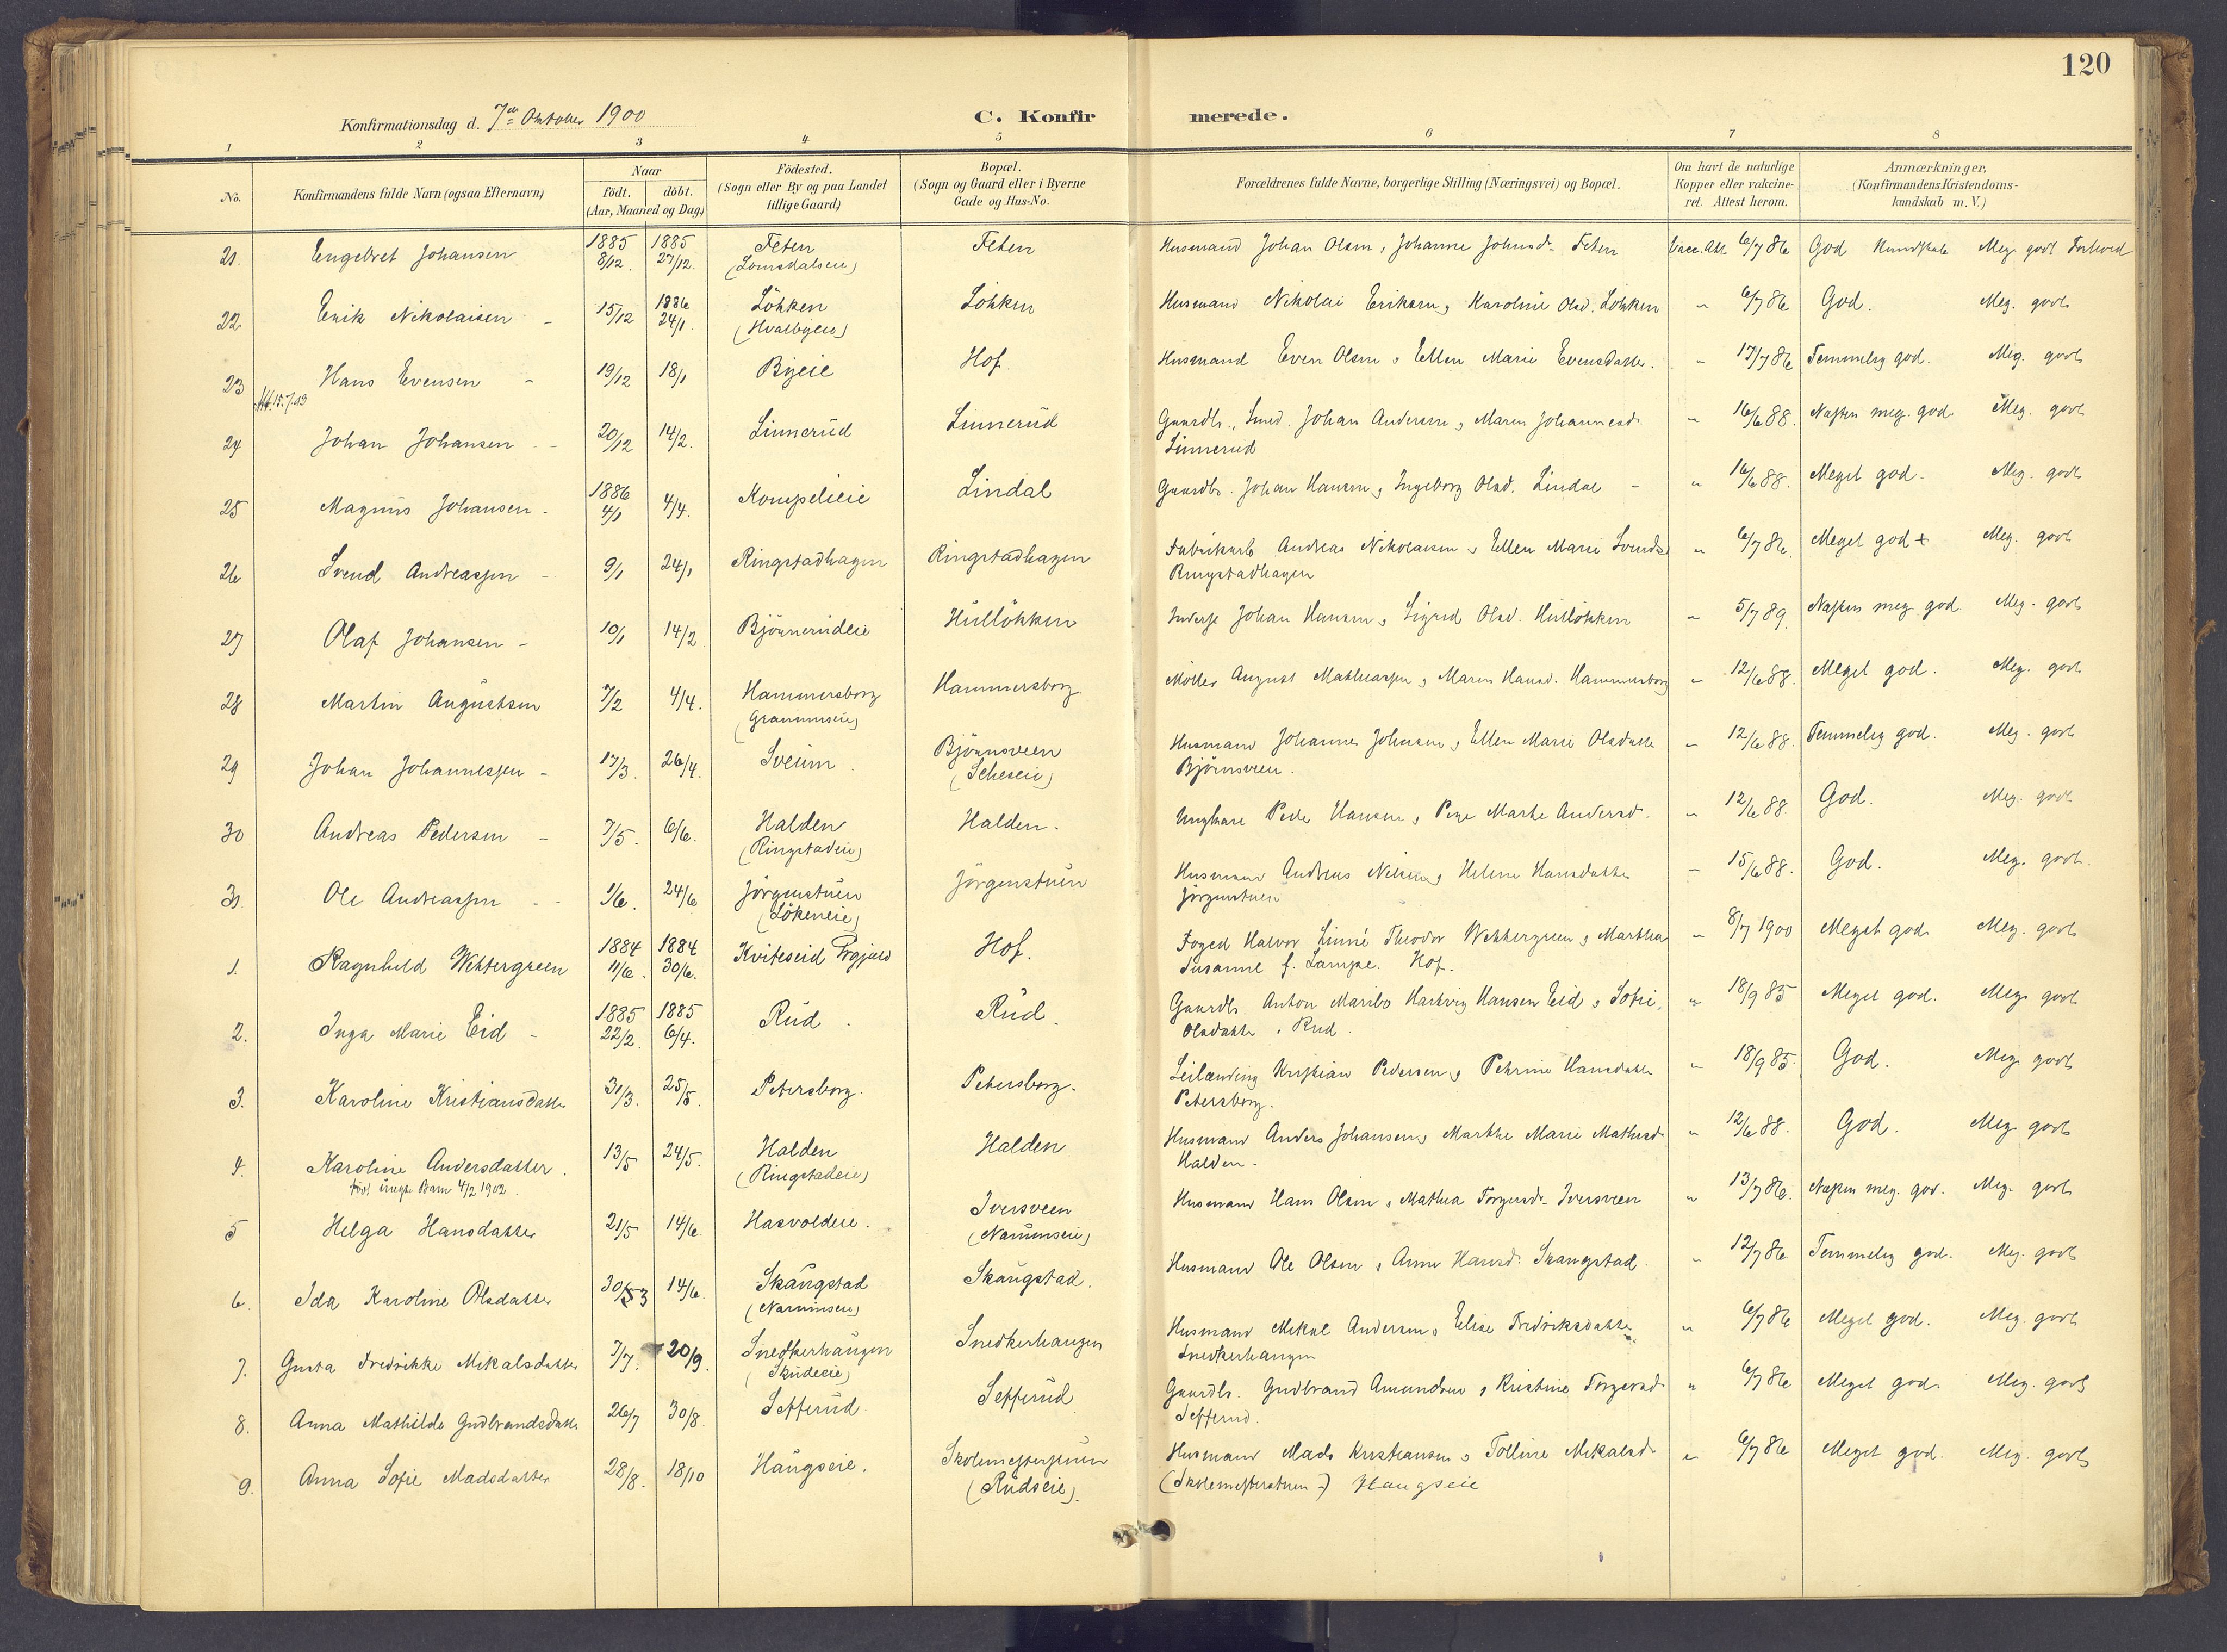 120
Konfirmationsdag d. 7de Oktober 1900
C. Konfirmerede.
1 2 3 4 5 6 7 8
No. Konfirmandens fulde Navn (ogsaa Efternavn) Naar født. døbt. (Aar, Maaned og Dag) Födested. (Sogn eller By og paa Landet tillige Gaard) Bopæl. (Sogn og Gaard eller i Byerne Gade og Hus-No. Forældrenes fulde Navne, borgerlige Stilling (Næringsvei) og Bopæl. Om havt de naturlige Kopper eller vakcineret. Attest herom. Anmærkninger, (Konfirmandens Kristendomskundskab m.V.)
21. Engebret Johansen 1885 8/12. 1885 27/12. Feten (Lomsdalseie) Feten Husmand Johan Olsen, Johanne Johnsd. Feten Vacc. Att. 6/7 86 God Kundskab Meg. godt Forhold
22 Erik Nikolaisen - 15/12 1886 24/1. Löhken (Hvalbyeie) Löhken Husmand Nikolai Eriksen, Karoline Olsd. Löhken " 6/7 86 God. Meg. godt
23 Hans Evensen - 19/12 18/1 Byeie Hof. Husmand Even Olsen, Ellen Marie Evensdatter. " 17/7 86 Temmelig god. Meg. godt
Att. 15.7.03
24 Johan Johansen - 20/12 14/2. Linnerud Linnerud Gaardbr., Smed. Johan Andersen, Maren Johannesd. Linnerud " 16/6 88. Næsten meg. god. Meg. godt
25 Magnus Johansen - 1886 4/1 4/4. Kompelieie Lindal Gaardbr. Johan Hansen, Ingeborg Olsd. Lindal - " 16/6 88. Meget god. Meg. godt
26 Svend Andreassen - 9/1 24/1 Ringstadhagen Ringstadhagen Fabrikarb. Andreas Nikolaisen, Ellen Marie Svends. Ringstadhagen " 6/7 86. Meget god + Meg. godt
27 Olaf Johansen - 10/1 14/2 Björnerudeie Hullökken Inderst Johan Hansen, Sigrid Olsd. Hullökken " 5/7 89. Næsten meg. god. Meg. godt
28 Martin Augustsen 7/2 4/4. Hammersborg (Granumseie) Hammersborg Möller August Mathiassen, Maren Hansd. Hammersborg " 12/6 88. Meget god. Meg. godt
29 Johan Johannessen - 17/3. 26/4. Sveum. Björnsveen (Seheseie) Husmand Johannes Johnsen, Ellen Marie Olsdatter Björnsveen. " 12/6 88. Temmelig god. Meg. godt
30 Andreas Pedersen - 7/5. 6/6. Halden (Ringstadeie) Halden. Ungkare Peder Hansen, Pige Marthe Andersd. " 12/6 88. God. Meg. godt
31 Ole Andreassen - - 1/6. 24/6 Jörgenstuen (Lökeneie) Jörgenstuen Husmand Andreas Nilsen, Helene Hansdatter Jörgenstuen " 15/6 88. God. Meg. godt.
1. Ragnhild Wettergreen 1884 11/6. 1884 30/6. Kviteseid Prgjæld Hof. Foged Halvor Linné Theodor Wettergreen, Martha Susanne f. Lampe. Hof. " 8/7 1900 Meget god Meg. godt
2. Inga Marie Eid - 1885 22/2. 1885 6/4. Rud. Rud. Gaardbr. Anton Maribo Hartvig Hansen Eid, Sofie Olsdatter, Rud. " 18/9 85 Meget god. Meg. godt
3. Karoline Kristiansdatter 31/3. 25/5. Petersborg. Petersborg. Leilænding Kristian Pedersen, Petrine Hansdatter Petersborg. " 18/9 85. God. Meg. godt
4. Karoline Andersdatter. 13/5 24/5. Halden (Ringstadeie) Halden. Husmand Anders Johansen, Marthe Marie Mathesd. Halden. " 12/6 88. God. Meg. godt
uægte Barn 4/2 1902.
5 Helga Hansdatter 21/5 14/6. Hasvoldeie. Iversveen (Narumseie) Husmand Hans Olsen, Mathea Torgersd. Iversveen " 13/7 86. Næsten meg. god. Meg. godt
6. Ida Karoline Olsdatter 30/3 14/6. Skaugstad (Narumseie) Skaugstad. Husmand Ole Olsen, Anne Hansd. Skaugstad. " 12/7 86 Temmelig god. Meg. godt
7. Gusta Fredrikke Mikalsdatter 7/7. 20/9. Snedkerhaugen (Skudeeie) Snedkerhaugen Husmand Mikal Andersen, Elise Fredriksdatter Snedkerhaugen " 6/7 86 Meget god. Meg. godt
8. Anna Mathilde Gudbrandsdatter 26/7 30/8. Sefferud. Sefferud Gaardbr. Gudbrand Amundsen, Kristine Torgersd. Sefferud. " 6/7 86 Meget god. Meg. godt
9. Anna Sofie Madsdatter 28/8. 18/10 Haugseie. Skolemesterstuen (Rudseie). Husmand Mads Kristiansen, Tolline Mikalsd. (Skolemesterstuen-) Haugseie " 6/7 86 Meget god. Meg. godt